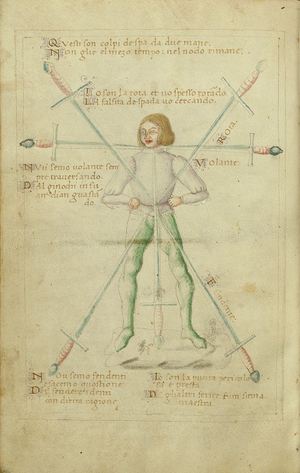 Questi son colpi de spada da due mane
Non glie el mezo tempo: nel nodo rimane:
Io son la rota et vo spesso rotado.
La falsita de spada vo cercando.
Rota.
Volante.
Nui semo volante sem
pre traversando.
Dal ginochi in su
guasta
do.
Fendente
Noi semo fendenti
e facemo questione
De fendere denti
con dritta ragione
Io son la punta pericolo
sa e presta
De gli altri
maestra